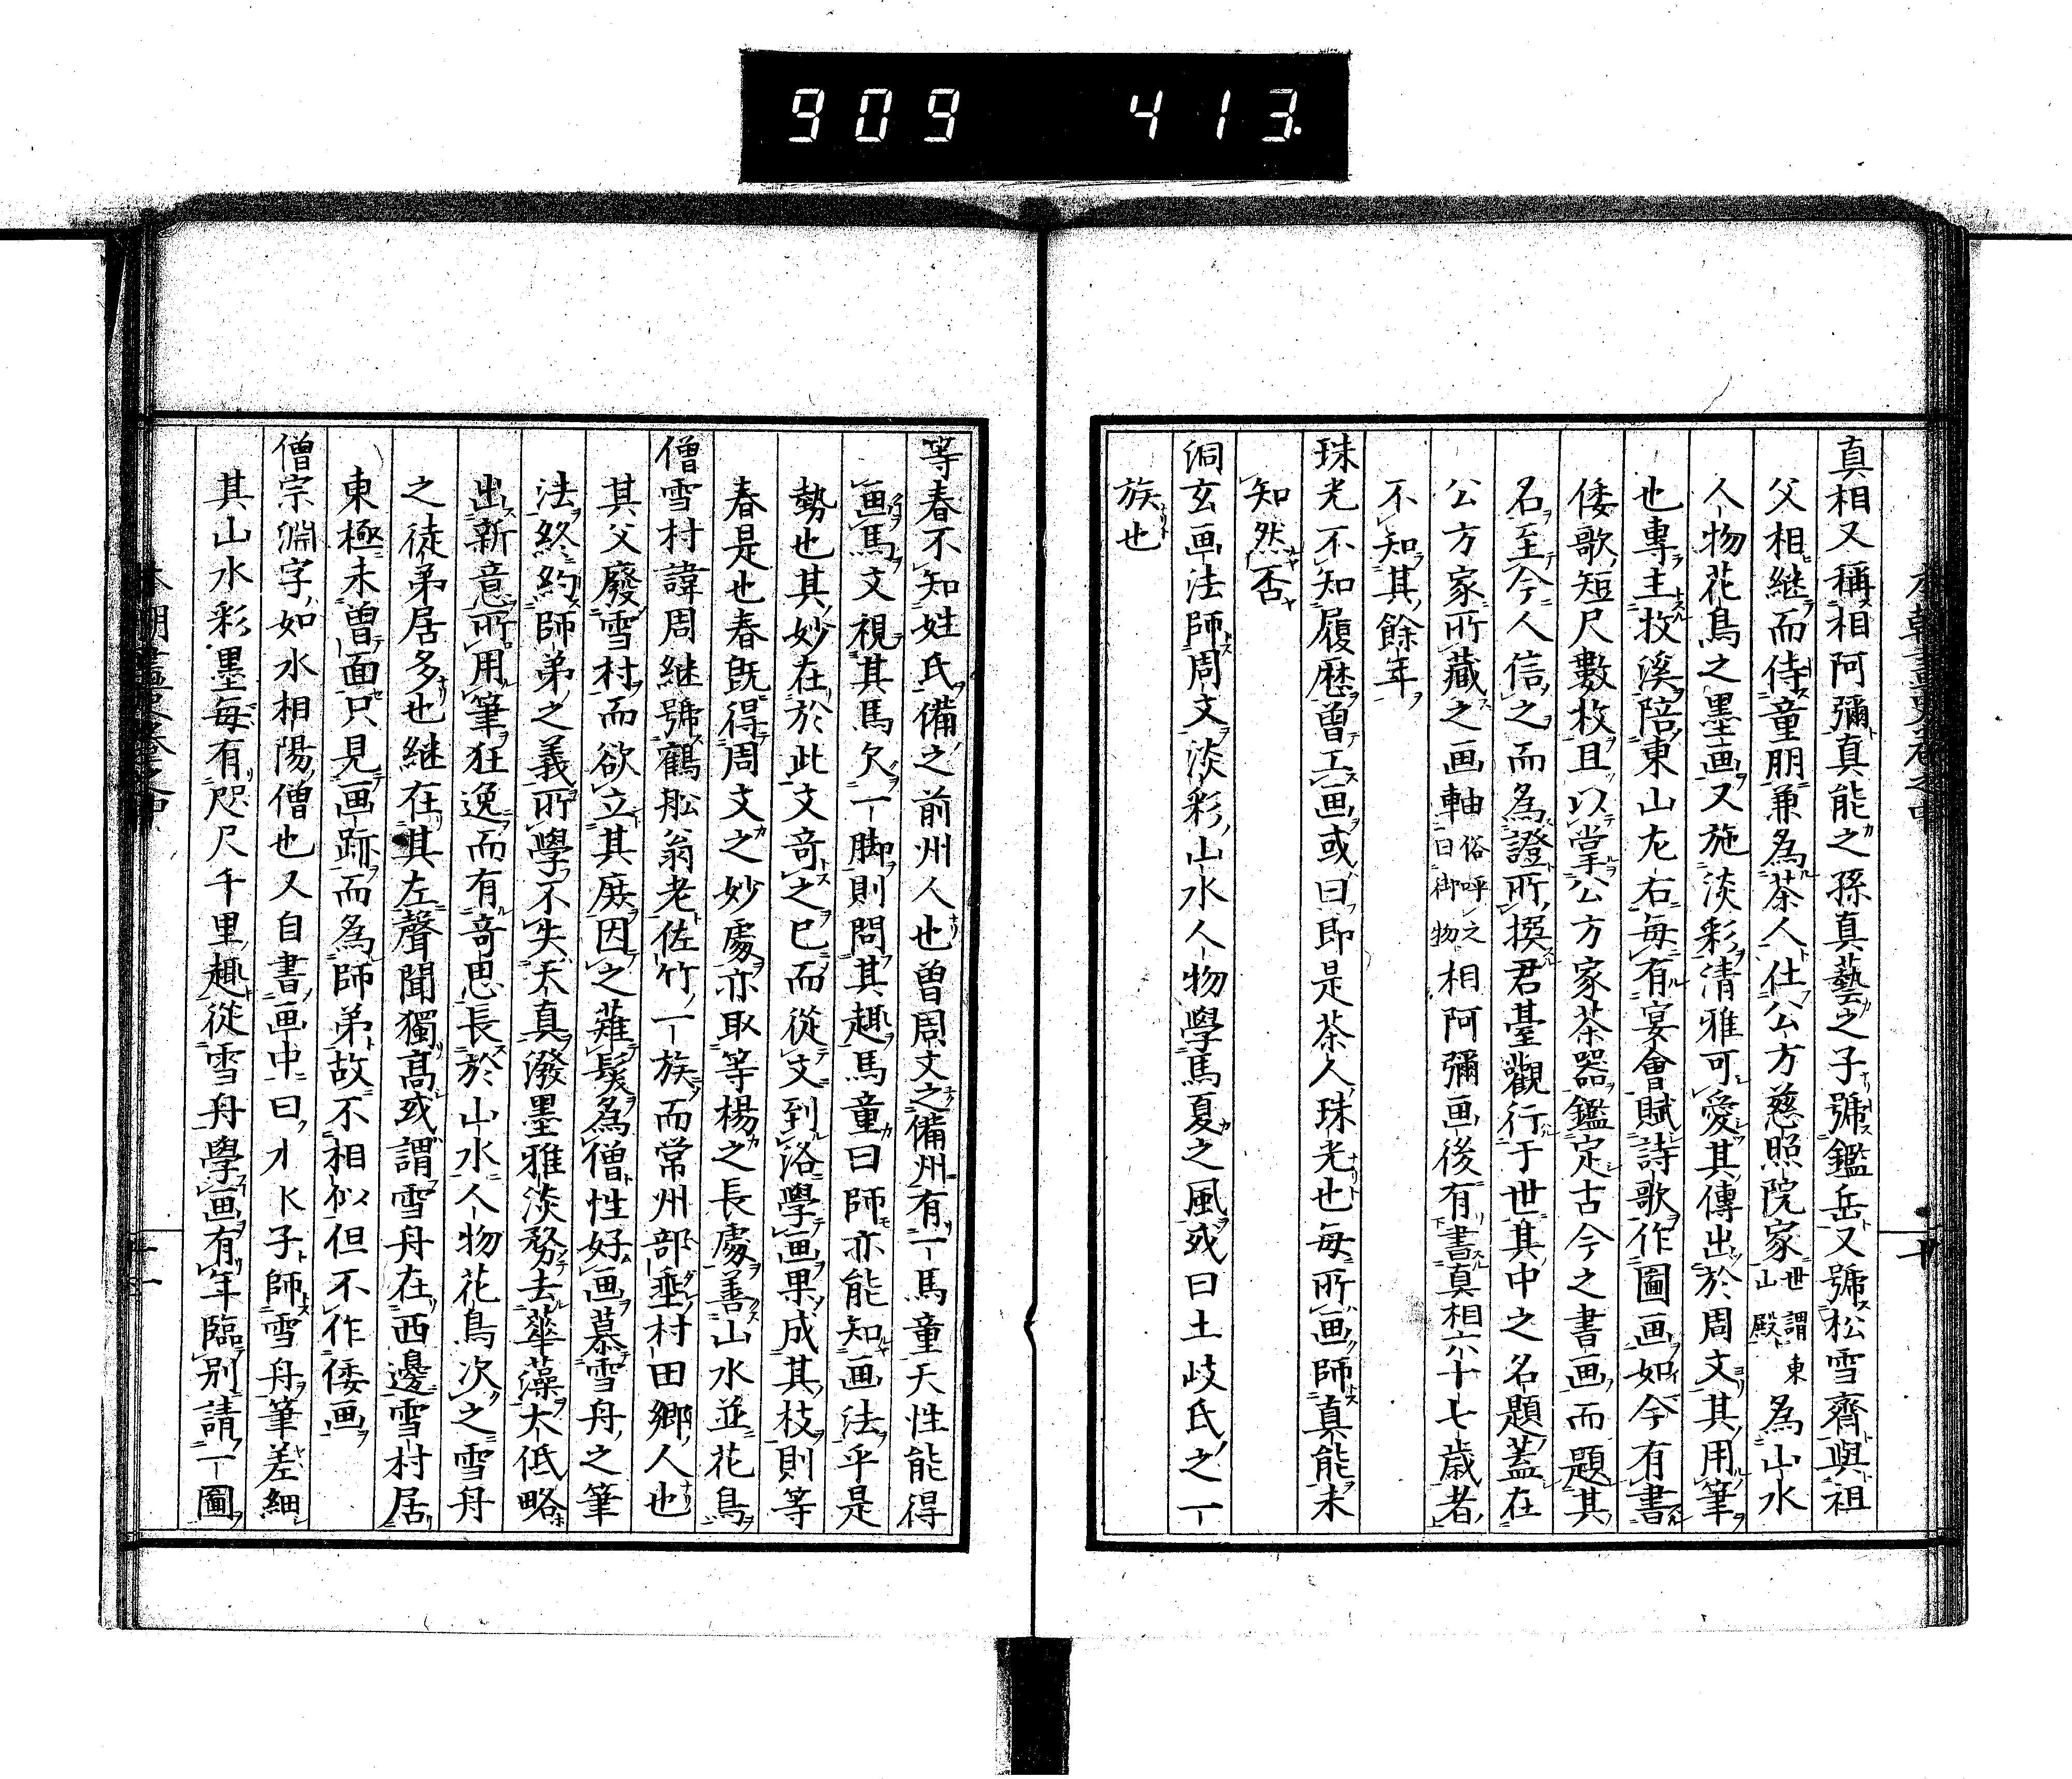 909 413.
本朝畫史卷之中 二十
真相又稱相阿彌真能之孫真藝之子號鑑岳又號松雪齋與祖
父相継而侍童朋兼為茶人仕公方慈照院家世謂東山殿為山水
人物花鳥之墨画又施淡彩清雅可愛其傳出於周文其用筆
也專主牧溪陪東山左右每有宴會賦詩歌作圖画如今有書
倭歌短尺數枚且以掌公方家茶器鑑定古今之書画而題其
名至今人信之而為證所撰君臺觀行于世其中之名題蓋在
公方家所藏之画軸俗呼之曰御物相阿彌画後有書真相六十七歳者
不知其餘年
珠光不知履歴曽工画或曰即是茶人珠光也每所画師真能未
知然否
洞玄画法師周文淡彩山水人物學馬夏之風或曰土岐氏之一
族也
等春不知姓氏備之前州人也曽周文之備州有一馬童天性能得
画馬文視其馬欠一脚則問其趣馬童曰師亦能知画法乎是
勢也其妙在於此文奇之已而從文到洛學画果成其枝則等
春是也春既得周文之妙處亦取等楊之長處善山水並花鳥
僧雪村諱周継號鶴舩翁老佐竹一族而常州部垂村田郷人也
其父廢雪村而欲立其庶因之薙髮為僧性好画慕雪舟之筆
法終約師弟之義所學不失天真潑墨雅淡務去華藻大低略
出新意所用筆狂逸而有奇思長於山水人物花鳥次之雪舟
之徒弟居多也継在其左聲聞獨髙或謂雪舟在西邊雪村居
東極未曽面只見画跡而為師弟故不相似但不作倭画
僧宗淵字如水相陽僧也又自書画中曰子師雪舟筆差細
其山水彩墨每有咫尺千里趣從雪舟學画有年臨別請一圖
本朝畫史卷之中